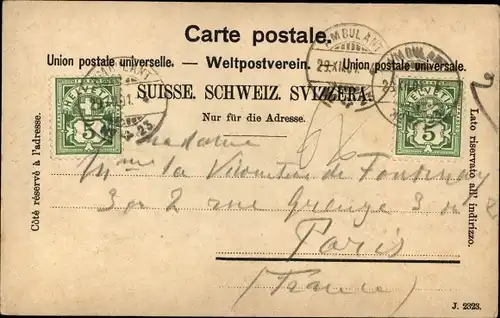 Carte postale.
Union postale universelle. — Weltpostverein. — Union postale universale.
SUISSE. SCHWEIZ. SVIZZERA.
Nur für die Adresse.
Côté réservé à l'adresse.
Lato riservato all' indirizzo.
AMBULANT
29.XII.01.
HELVETIA
5
HELVETIA
5
Madame
Mme la Vicomtesse de Fontenay
2 rue
Paris
(France)
J. 2323.